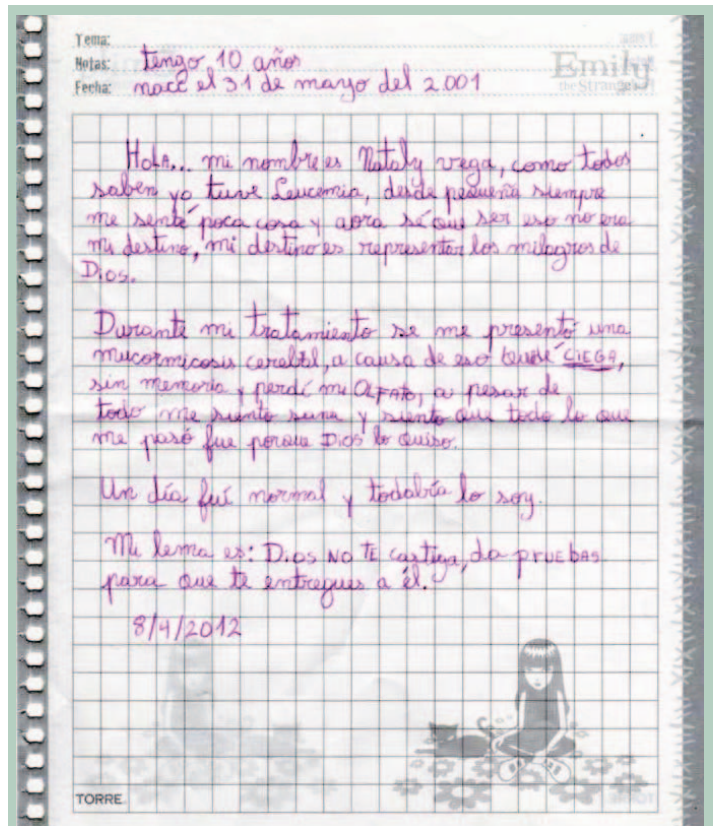 Tema:
Notas: tengo 10 años
Fecha: nací el 31 de mayo del 2.001
Emily
the Strange
HoLA... mi nombre es Nataly vega, como todos
saben yo tuve Leucemia, desde pequeña siempre
me sentí poca cosa y aora sé que ser eso no era
mi destino, mi destino es representar los milagros de
Dios.
Durante mi tratamiento se me presentó una
mucormicosis cerebral, a causa de eso Quedé CIEGA,
sin memoria y perdí mi OLFATO, a pesar de
todo me siento sana y siento que todo lo que
me pasó fue porque Dios lo quiso.
Un día fuí normal y todabía lo soy.
Mi lema es: Dios NO TE castiga, da pruEbAs
para que te entregues a él.
8/4/2012
TORRE